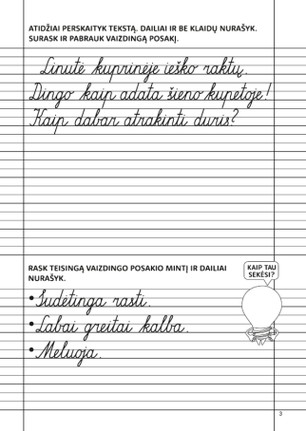 ATIDŽIAI PERSKAITYK TEKSTĄ. DAILIAI IR BE KLAIDŲ NURAŠYK.
SURASK IR PABRAUK VAIZDINGĄ POSAKĮ.
Linutė kuprinėje ieško raktų.
Dingo kaip adata šieno kupetoje!
Kaip dabar atrakinti duris?
RASK TEISINGĄ VAIZDINGO POSAKIO MINTĮ IR DAILIAI
NURAŠYK.
KAIP TAU
SEKĖSI?
• Sudėtinga rasti.
• Labai greitai kalba.
• Meluoja.
3